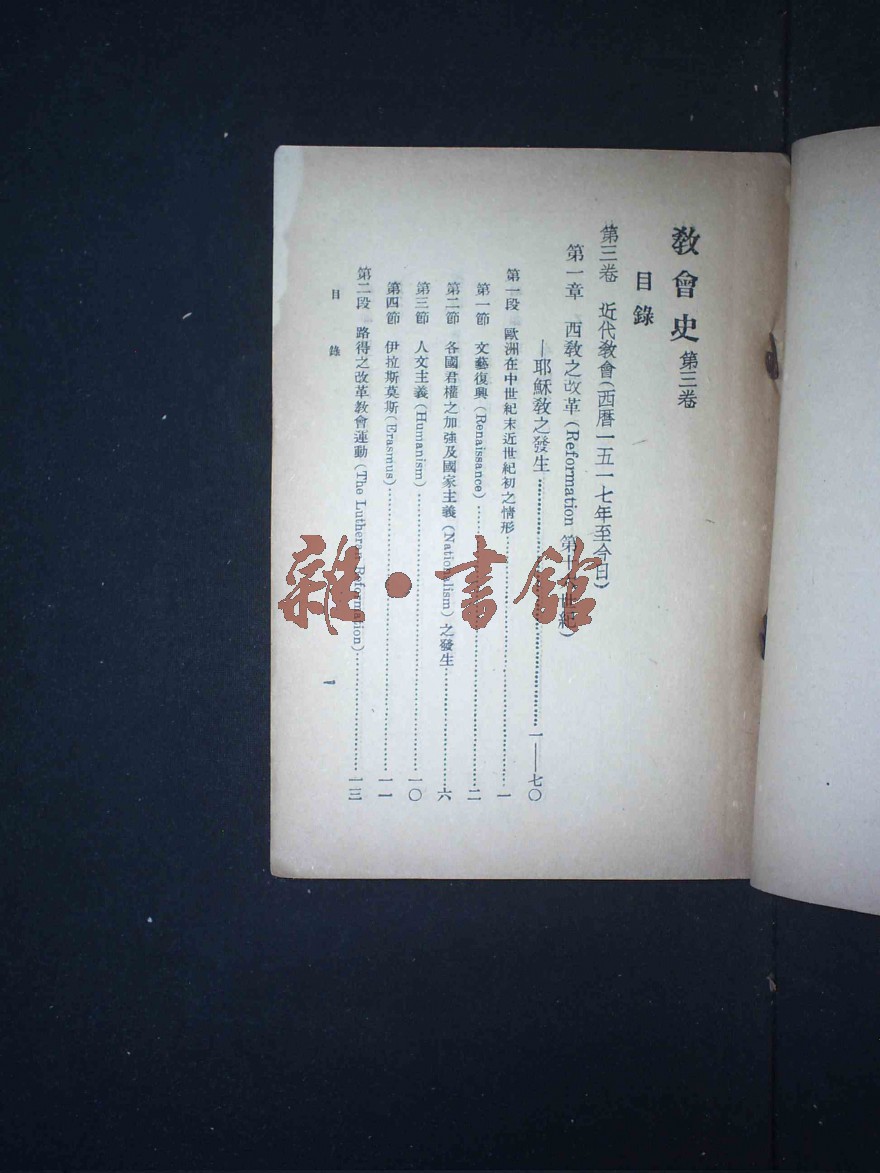 教會史 第三卷
目錄
第三卷 近代教會(西曆一五一七年至今日)
第一章 西教之改革(Reformation 第十六世紀)
—耶穌教之發生…………一——七〇
第一段 歐洲在中世紀末近世紀初之情形…………一
第一節 文藝復興(Renaissance)…………二
第二節 各國君權之加強及國家主義(Nationalism)之發生…………六
第三節 人文主義(Humanism)…………一〇
第四節 伊拉斯莫斯(Erasmus)…………一一
第二段 路得之改革教會運動(The Lutheran Reformation)…………一三
目錄 一
雜·書館